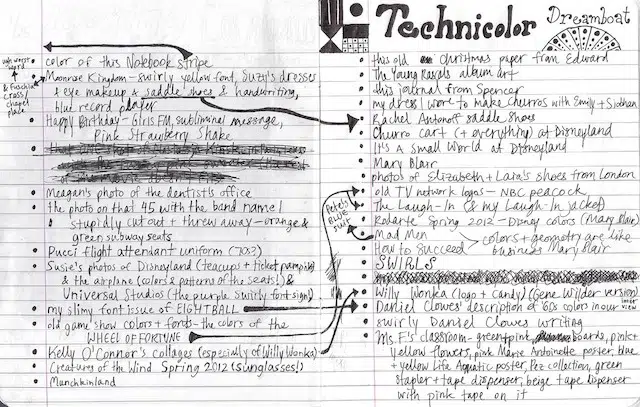 Technicolor Dreamboat
color of this Notebook stripe
& Fuschia cross/
chapel
place
Moonrise Kingdom - swirly yellow font, Suzy's dresses
+ eye makeup & saddle shoes & handwriting,
blue record player
Happy Birthday - Girls FM, subliminal message,
Pink Strawberry Shake
Meagan's photo of the dentist's office
the photo on that 45 with the band name I
stupidly cut out + threw away - orange &
green subway seats
Pucci flight attendant uniform (70s?)
Susie's photos of Disneyland (teacups + ticket pumpkins)
& the airplane (colors & patterns of the seats!) &
Universal Studios (the purple swirly font sign!)
my slimy font issue of EIGHTBALL
old game show colors + fonts - the colors of the
WHEEL OF FORTUNE
Kelly O'Connor's collages (especially of Willy Wonka)
Creatures of the Wind Spring 2012 (sunglasses!)
Munchkinland
this old Christmas paper from Edward
The Young Rascals album art
this journal from Spencer
my dress I wore to make churros with Emily + Siobhan
Rachel Antonoff saddle shoes
Churro cart (+ everything) at Disneyland
It's a Small World at Disneyland
Mary Blair
photos of Elizabeth + Laia's shoes from London
old TV network logos - NBC peacock
The Laugh-In (& my Laugh-In jacket)
Rodarte Spring 2012 - Disney colors (Mary Blair)
Pete's
BLUE
SUIT
Mad Men
How to Succeed
colors + geometry are like
business Mary Blair
SWIRLS
Willy Wonka (logo + candy) (Gene Wilder version)
Daniel Clowes' description of '60s colors in our inner view
swirly Daniel Clowes writing
Ms F's classroom - green + pink boards, pink +
yellow flowers, pink Marie Antoinette poster, blue
+ yellow Life Aquatic poster, Pez collection, green
stapler + tape dispenser, beige tape dispenser
with pink tape on it